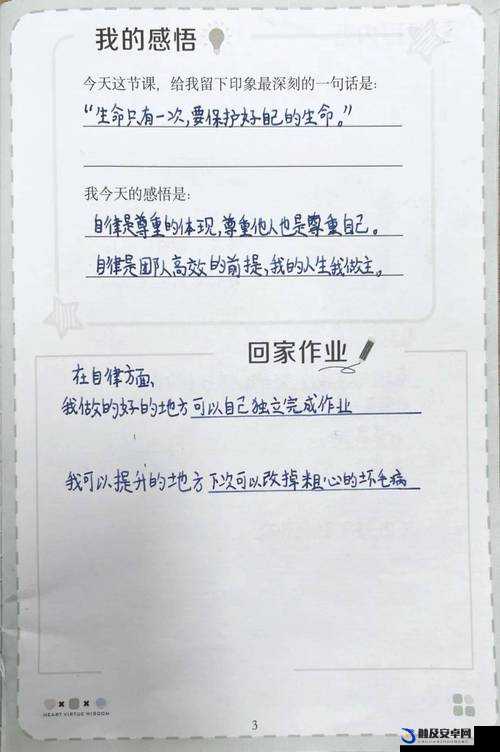 我的感悟
今天这节课，给我留下印象最深刻的一句话是:
“生命只有一次,要保护好自己的生命。”
我今天的感悟是:
自律是尊重的体现,尊重他人也是尊重自己。
自律是团队高效的前提,我的人生我做主。
回家作业
在自律方面、
我做的好的地方可以自己独立完成作业
我可以提升的地方下次可以改掉粗心的坏毛病
HEART VIRTUE WISDOM
3
触及安卓网